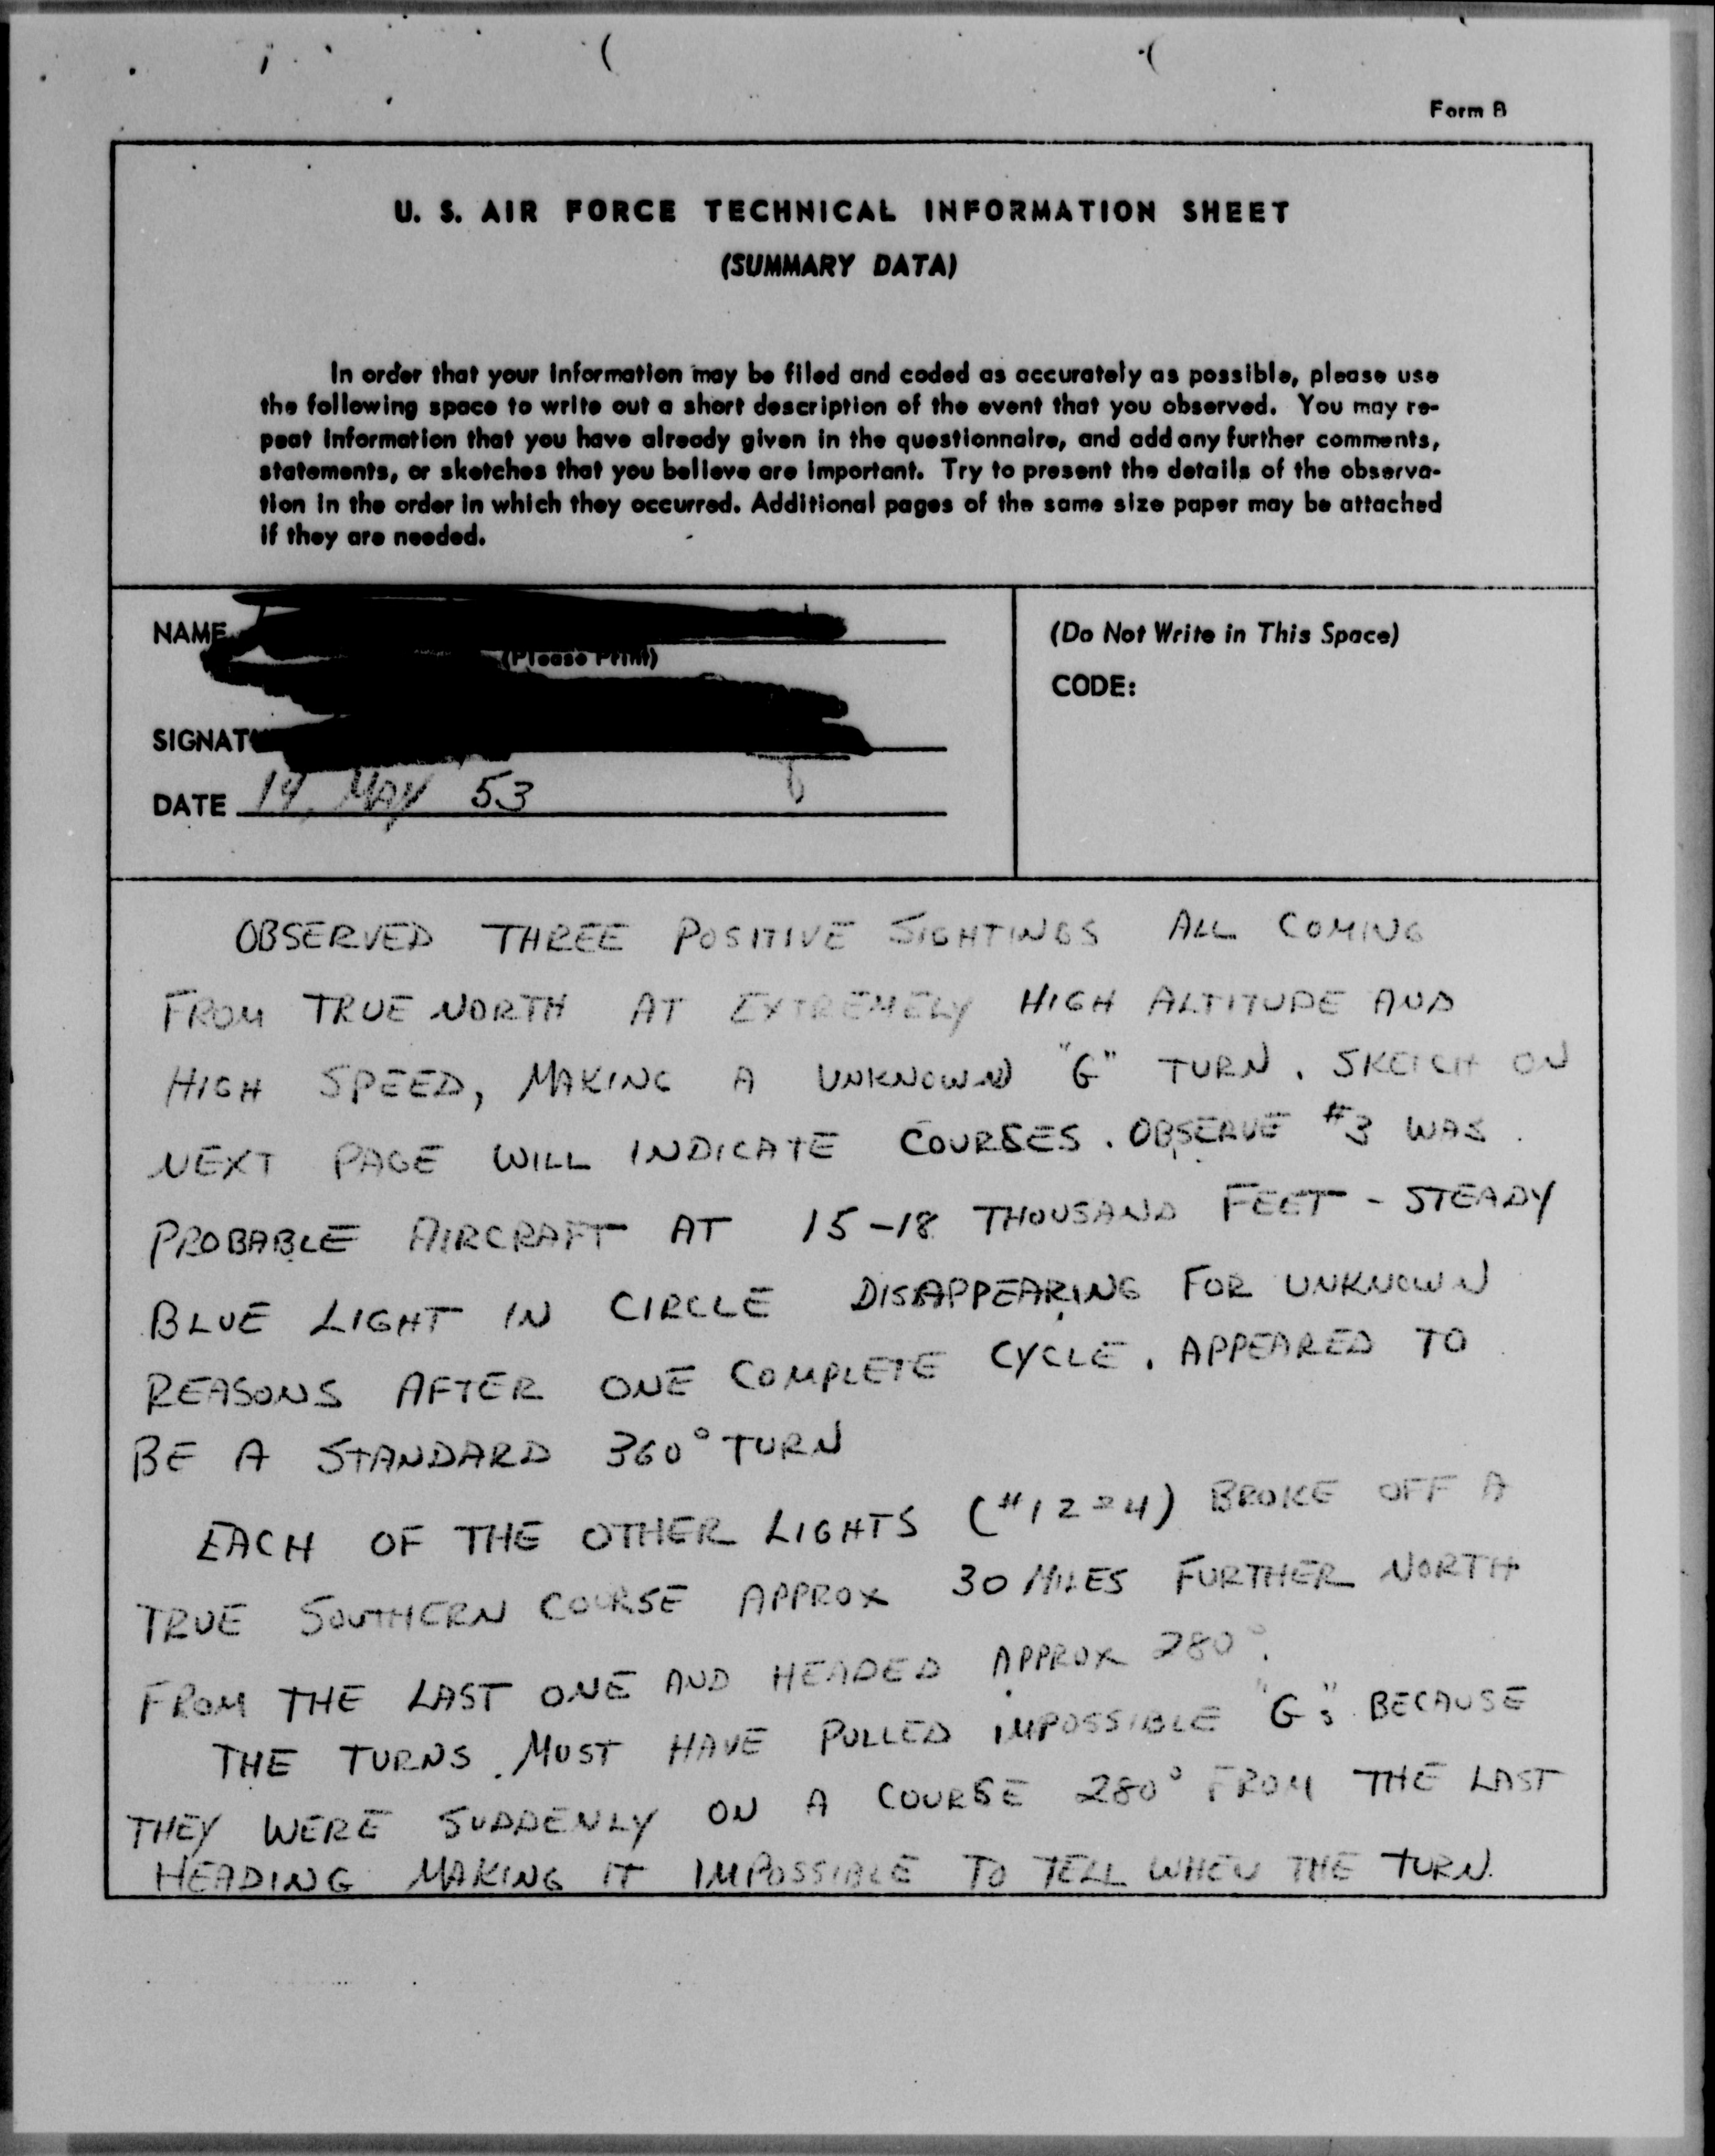 Form B
U. S. AIR FORCE TECHNICAL INFORMATION SHEET
(SUMMARY DATA)
In order that your information may be filed and coded as accurately as possible, please use
the following space to write out a short description of the event that you observed. You may re-
peat information that you have already given in the questionnaire, and add any further comments,
statements, or sketches that you believe are important. Try to present the details of the observa-
tion in the order in which they occurred. Additional pages of the same size paper may be attached
if they are needed.
NAME
(Please Print)
SIGNAT
DATE 14 MAY 53
(Do Not Write in This Space)
CODE:
OBSERVED THREE POSITIVE SIGHTINGS ALL COMING
FROM TRUE NORTH AT EXTREMELY HIGH ALTITUDE AND
HIGH SPEED, MAKING A UNKNOWN "G" TURN. SKETCH ON
NEXT PAGE WILL INDICATE COURSES. OBSERVE #3 WAS
PROBABLE AIRCRAFT AT 15-18 THOUSAND FEET - STEADY
BLUE LIGHT IN CIRCLE DISAPPEARING FOR UNKNOWN
REASONS AFTER ONE COMPLETE CYCLE. APPEARED TO
BE A STANDARD 360° TURN
EACH OF THE OTHER LIGHTS (#1 2 4) BROKE OFF A
TRUE SOUTHERN COURSE APPROX 30 MILES FURTHER NORTH
FROM THE LAST ONE AND HEADED APPROX 280°.
THE TURNS MUST HAVE PULLED IMPOSSIBLE "G's" BECAUSE
THEY WERE SUDDENLY ON A COURSE 280° FROM THE LAST
HEADING MAKING IT IMPOSSIBLE TO TELL WHEN THE TURN.